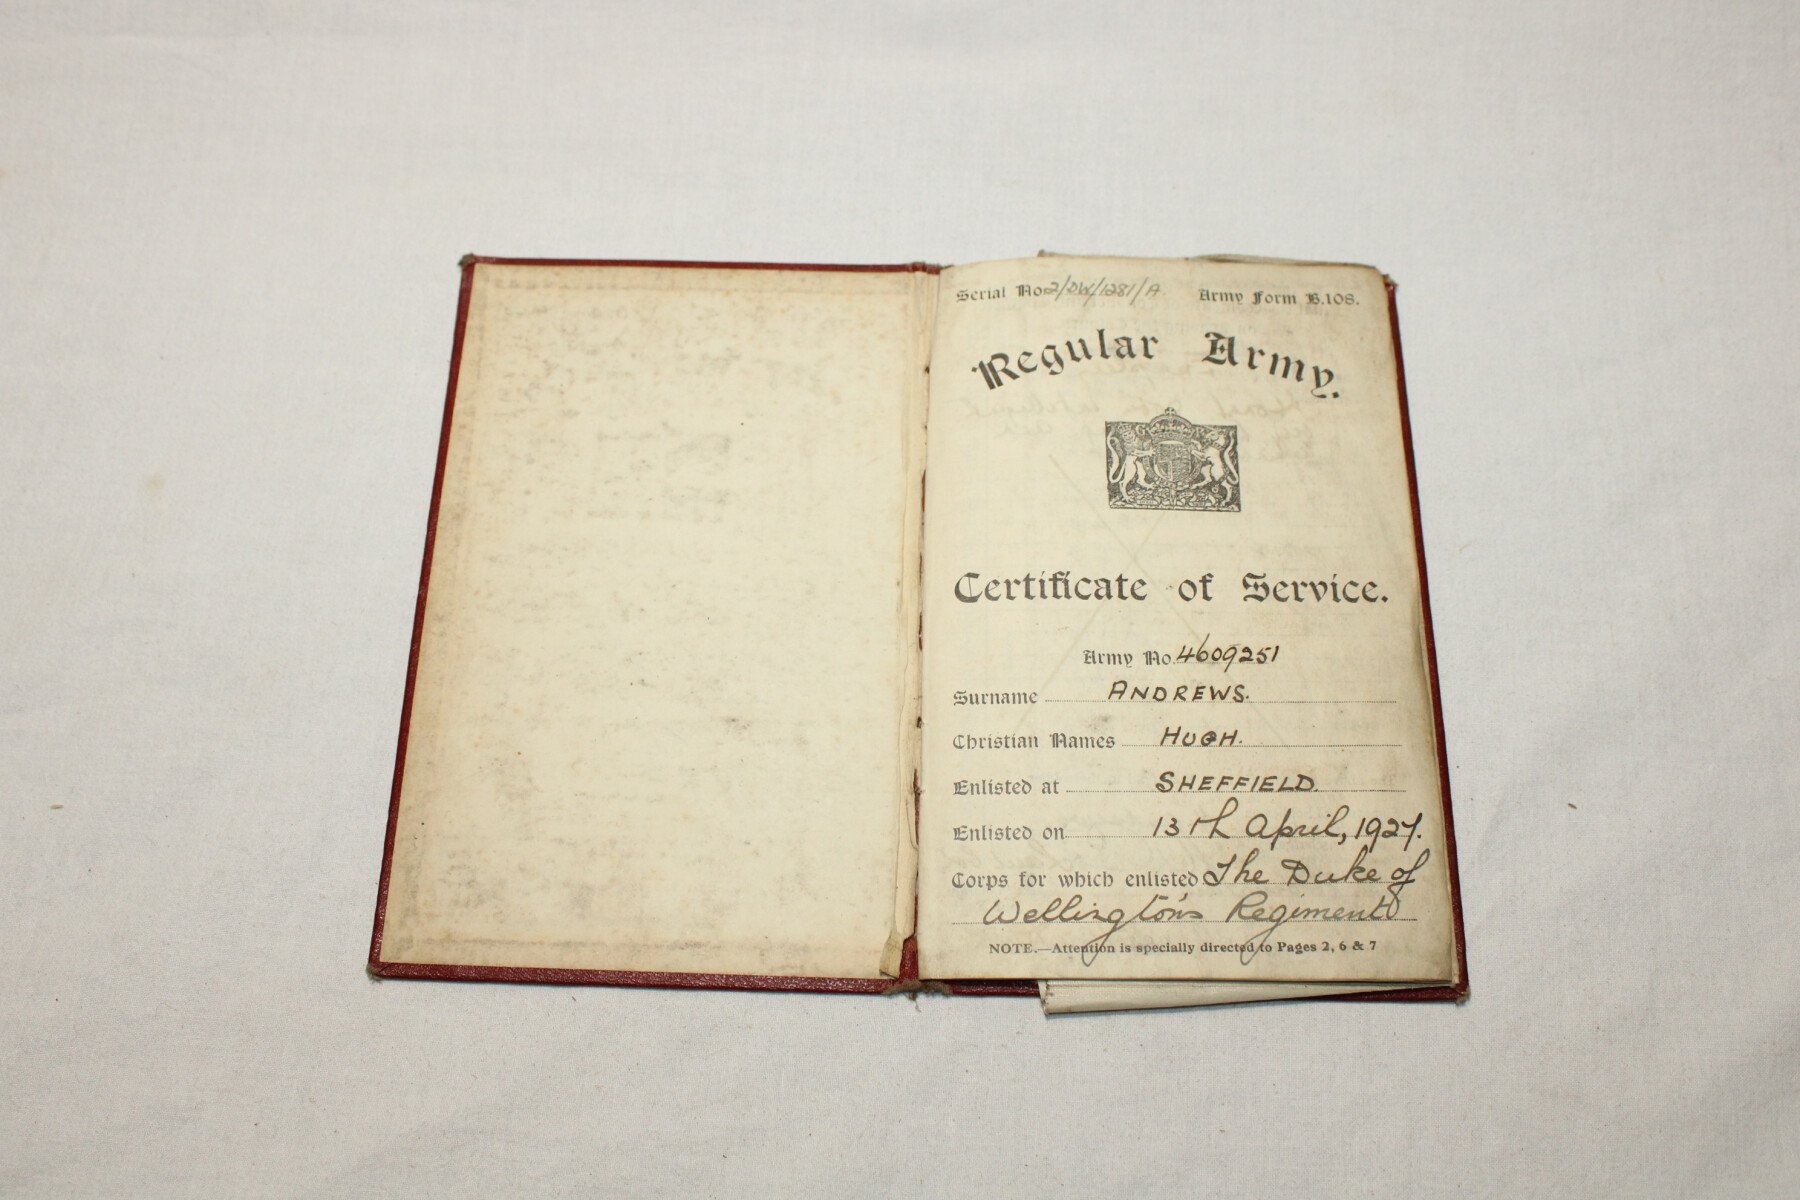 Serial No 2/DW/1281/A. Army Form B.108.
Regular Army.
Certificate of Service.
Army No. 4609251
Surname ANDREWS.
Christian Names HUGH.
Enlisted at SHEFFIELD.
Enlisted on 13th April, 1927.
Corps for which enlisted The Duke of
Wellington's Regiment
NOTE.—Attention is specially directed to Pages 2, 6 & 7